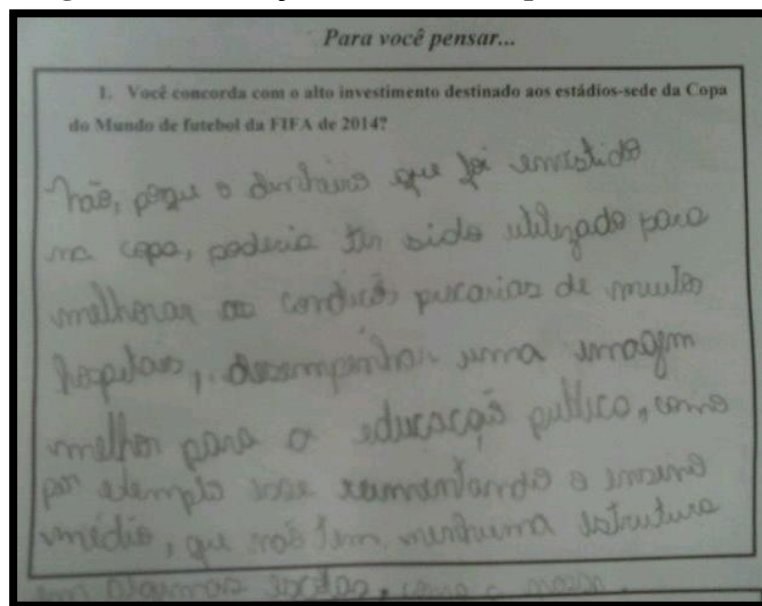 Para você pensar...
1. Você concorda com o alto investimento destinado aos estádios-sede da Copa
do Mundo de futebol da FIFA de 2014?
Não, porque o dinheiro que foi envistido
na copa, poderia ter sido utilizado para
melhorar as condicõs precarias de muitos
hospitais, desempenhar uma imagem
melhor para a educacação publica, como
por exemplo esse o ensino
médio, que não tem nenhuma estrutura
em algumas escolas, como a nossa.